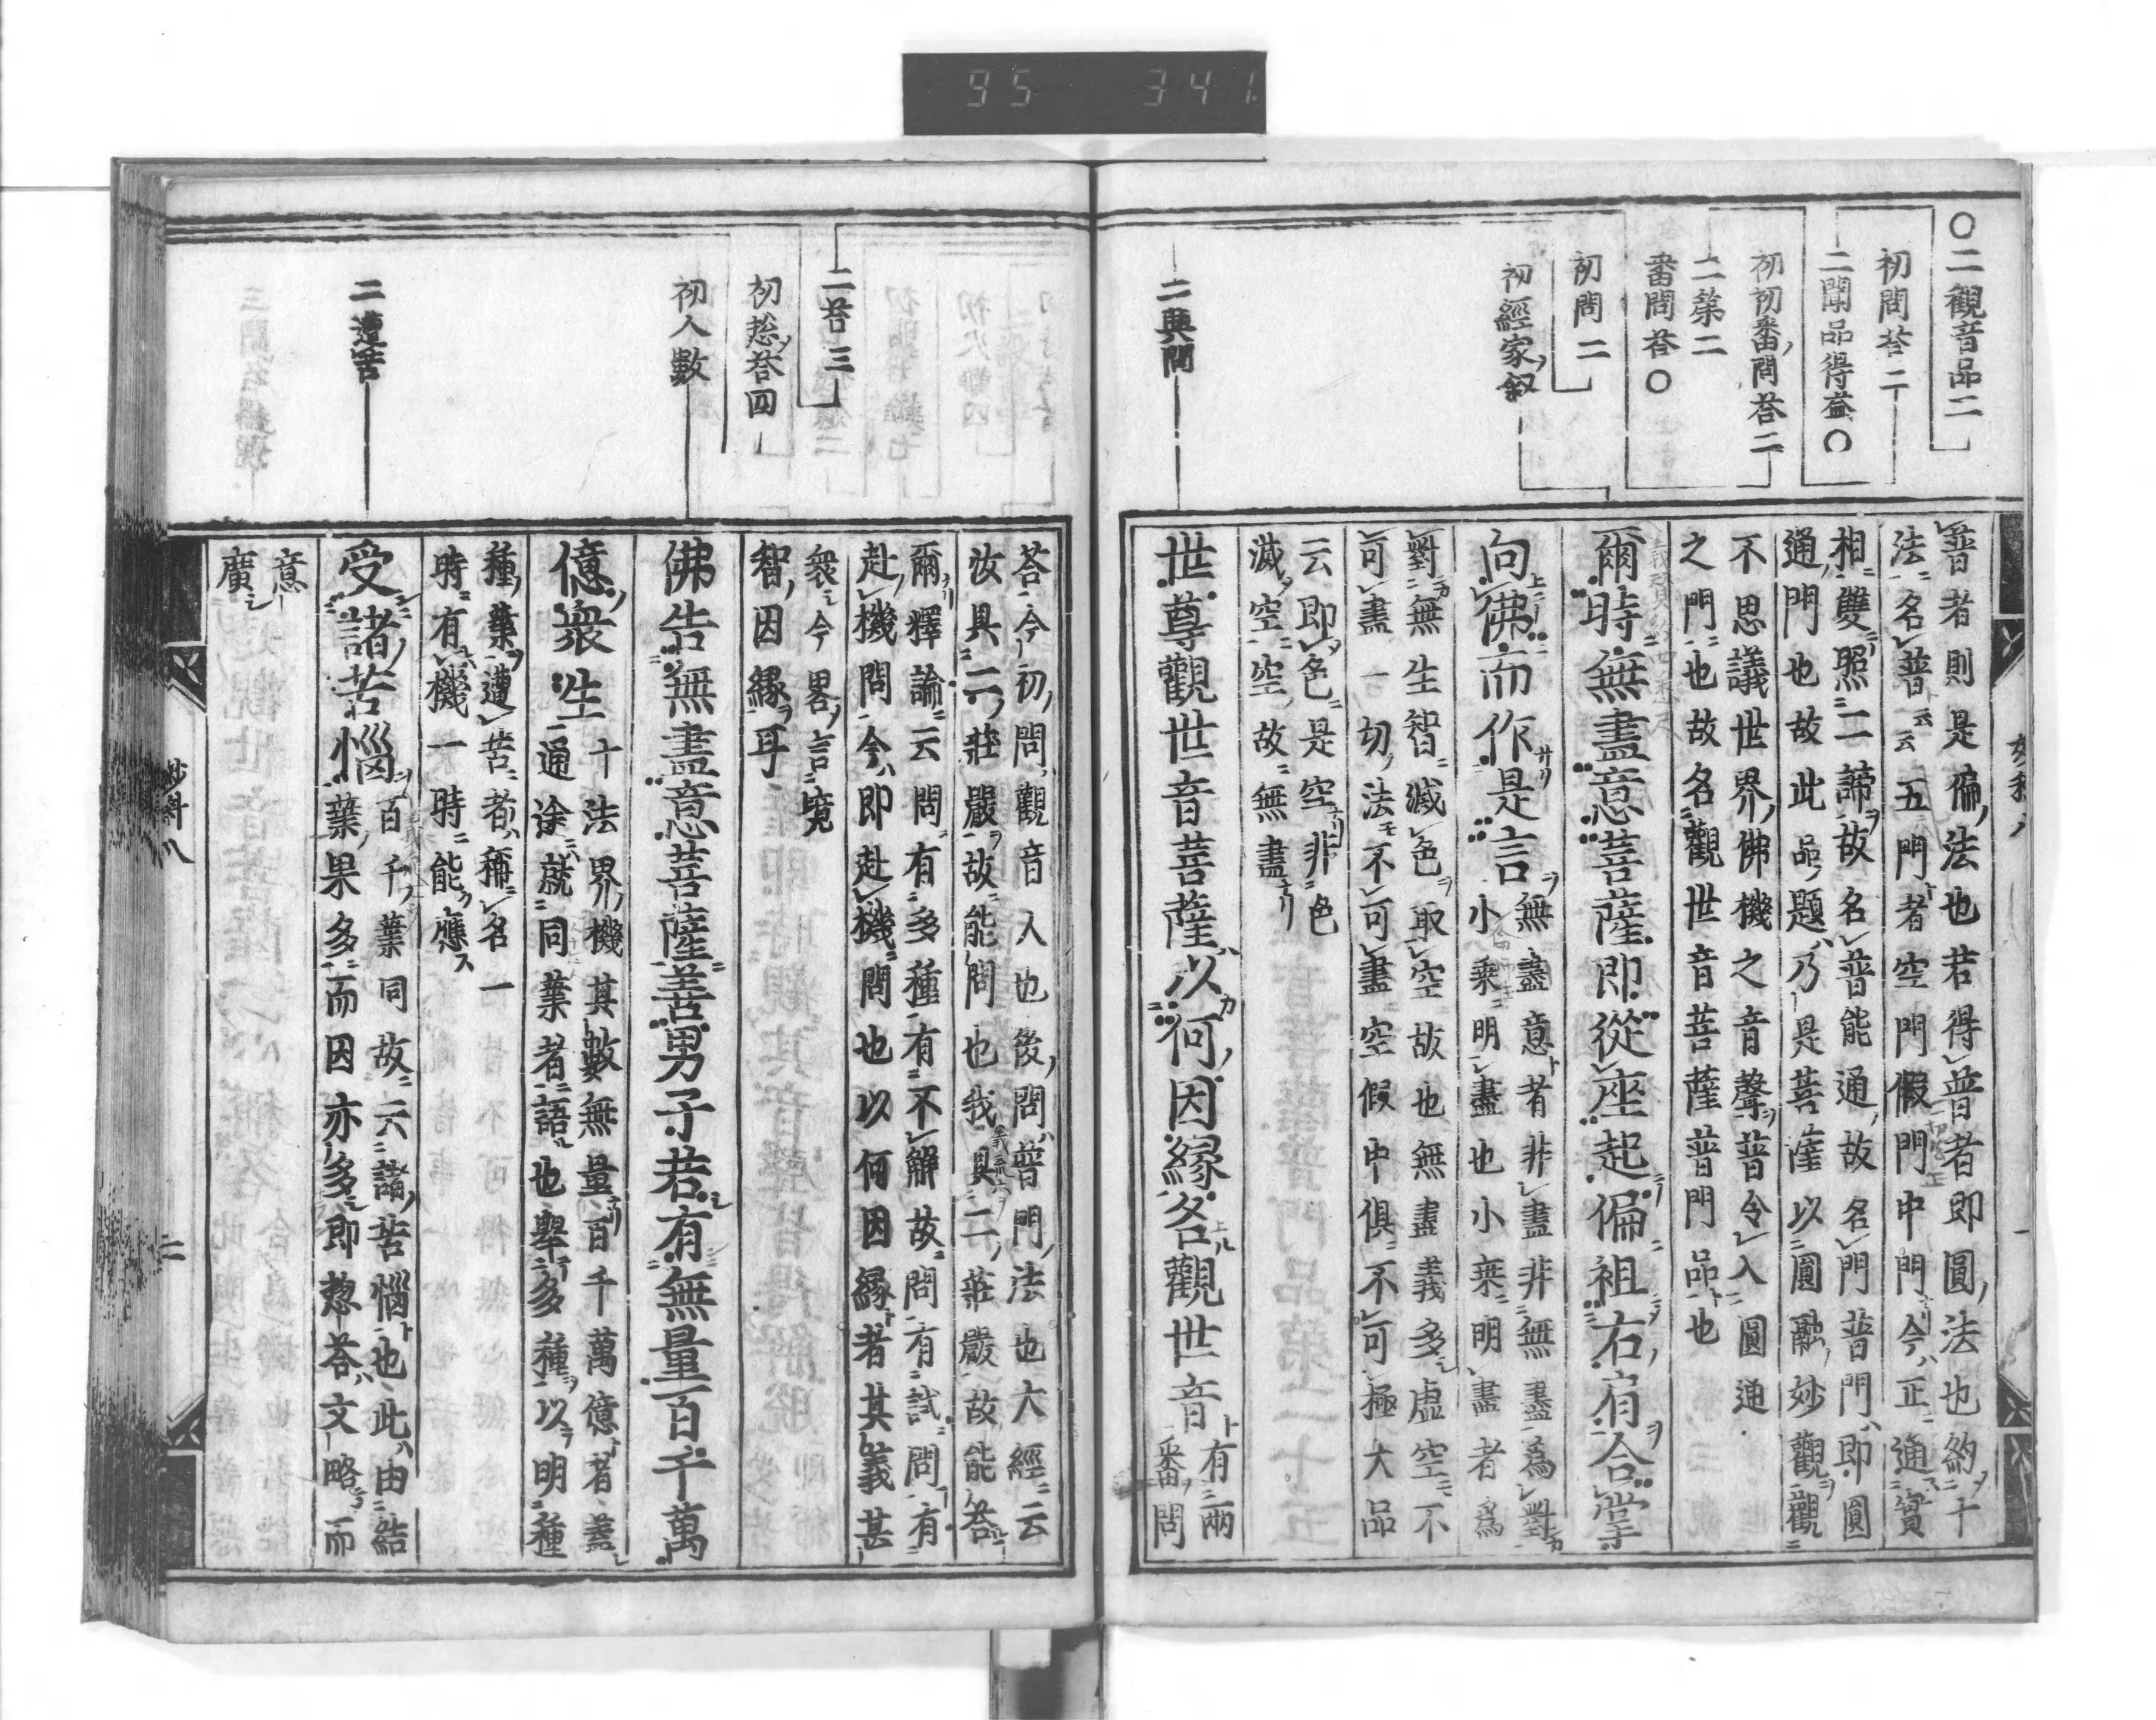 95 341
〇二觀音品二
初問荅二
二聞品得益〇
初初番問荅二
二第二
番問荅〇
初問二
初經家叙
二興問
普者則是徧法也若得普者即圓法也約十
法名普云云五門者空門假門中門今正通實
相雙照二諦故名普能通故名門普門即圓
通門也故此品題乃是菩薩以圓融妙觀觀
不思議世界佛機之音聲普令入圓通
之門也故名觀世音菩薩普門品也
爾時無盡意菩薩即從座起偏袒右肩合掌
向佛而作是言
無盡意者非盡非無盡為對
小乘明盡也小乘明盡者為
對無生智滅色取空故也無盡義多虛空不
可盡一切法不可盡空假中俱不可極大品
云即色是空非色
滅空空故無盡
世尊觀世音菩薩以何因緣名觀世音
有兩
番問
二荅三
初惣荅四
初人數
二遭苦
荅今初問觀音人也後問普門法也大經云
汝具二莊嚴故能問也我具二莊嚴故能荅
爾釋論云問有多種有不解故問有試問有
赴機問今即赴機問也以何因緣者其義甚
衆今畧言境
智因緣耳
佛告無盡意菩薩善男子若有無量百千萬
億衆生
十法界機其數無量百千萬億者蓋
通途就同業者語也舉多種以明種
種業遭苦者稱名一
時有機一時能應
受諸苦惱
百千業同故云諸苦惱也此由結
業果多而因亦多即惣荅文略而
意
廣
妙科八
二